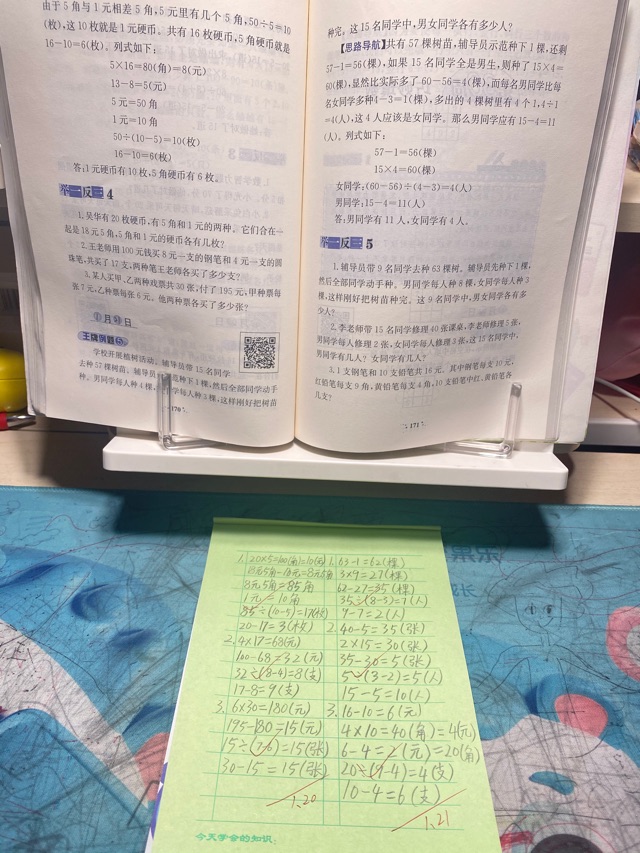 由于5角与1元相差5角,5元里有几个5角,50÷5=10
(枚),这10枚就是1元硬币。共有16枚硬币,5角硬币就是
16-10=6(枚)。列式如下:
5×16=80(角)=8(元)
13-8=5(元)
5元=50角
1元=10角
50÷(10-5)=10(枚)
16-10=6(枚)
答:1元硬币有10枚,5角硬币有6枚。
举一反三4
1.吴华有20枚硬币,有5角和1元的两种。它们合在一
起是18元5角,5角和1元的硬币各有几枚?
2.王老师用100元钱买8元一支的钢笔和4元一支的圆
珠笔,共买了17支,两种笔王老师各买了多少支?
3.某人买甲、乙两种戏票共30张,付了195元,甲种票每
张7元,乙种票每张6元。他两种票各买了多少张?
月 日
王牌例题5
学校开展植树活动。辅导员带15名同学
去种57棵树苗。辅导员示范种下1棵,然后全部同学动手
种。男同学每人种4棵,女同学每人种3棵,这样刚好把树苗
170
种完。这15名同学中,男女同学各有多少人?
【思路导航】共有57棵树苗,辅导员示范种下1棵,还剩
57-1=56(棵),如果15名同学全是男生,则种了15×4=
60(棵),显然比实际多了60-56=4(棵),而每名男同学比每
名女同学多种4-3=1(棵),多出的4棵树里有4个1,4÷1
=4(人),这4人应该是女同学。那么男同学应有15-4=11
(人)。列式如下:
57-1=56(棵)
15×4=60(棵)
女同学:(60-56)÷(4-3)=4(人)
男同学:15-4=11(人)
答:男同学有11人,女同学有4人。
举一反三5
1.辅导员带9名同学去种63棵树。辅导员先种下1棵,
然后全部同学动手种。男同学每人种8棵,女同学每人种3
棵,这样刚好把树苗种完。这9名同学中,男女同学各有多
少人?
2.李老师带15名同学修理40张课桌,李老师修理5张,
男同学每人修理2张,女同学每人修理3张,这15名同学中,
男同学有几人?女同学有几人?
3.1支钢笔和10支铅笔共16元。其中钢笔每支10元,
红铅笔每支9角,黄铅笔每支4角,10支铅笔中红、黄铅笔各
几支?
171
1. 20×5=100(角)=10(元)
8元5角=85角
1元=10角
85÷(10-5)=17(枚)
20-17=3(枚)
2. 4×17=68(元)
100-68=32(元)
32÷(8-4)=8(支)
17-8=9(支)
3. 6×30=180(元)
195-180=15(元)
15÷(7-6)=15(张)
30-15=15(张)
1.20
1. 63-1=62(棵)
3×9=27(棵)
62-27=35(棵)
35÷(8-3)=7(人)
9-7=2(人)
2. 40-5=35(张)
2×15=30(张)
35-30=5(张)
5÷(3-2)=5(人)
15-5=10(人)
3. 16-10=6(元)
4×10=40(角)=4(元)
6-4=2(元)=20(角)
20÷(9-4)=4(支)
10-4=6(支)
1.21
今天学会的知识: